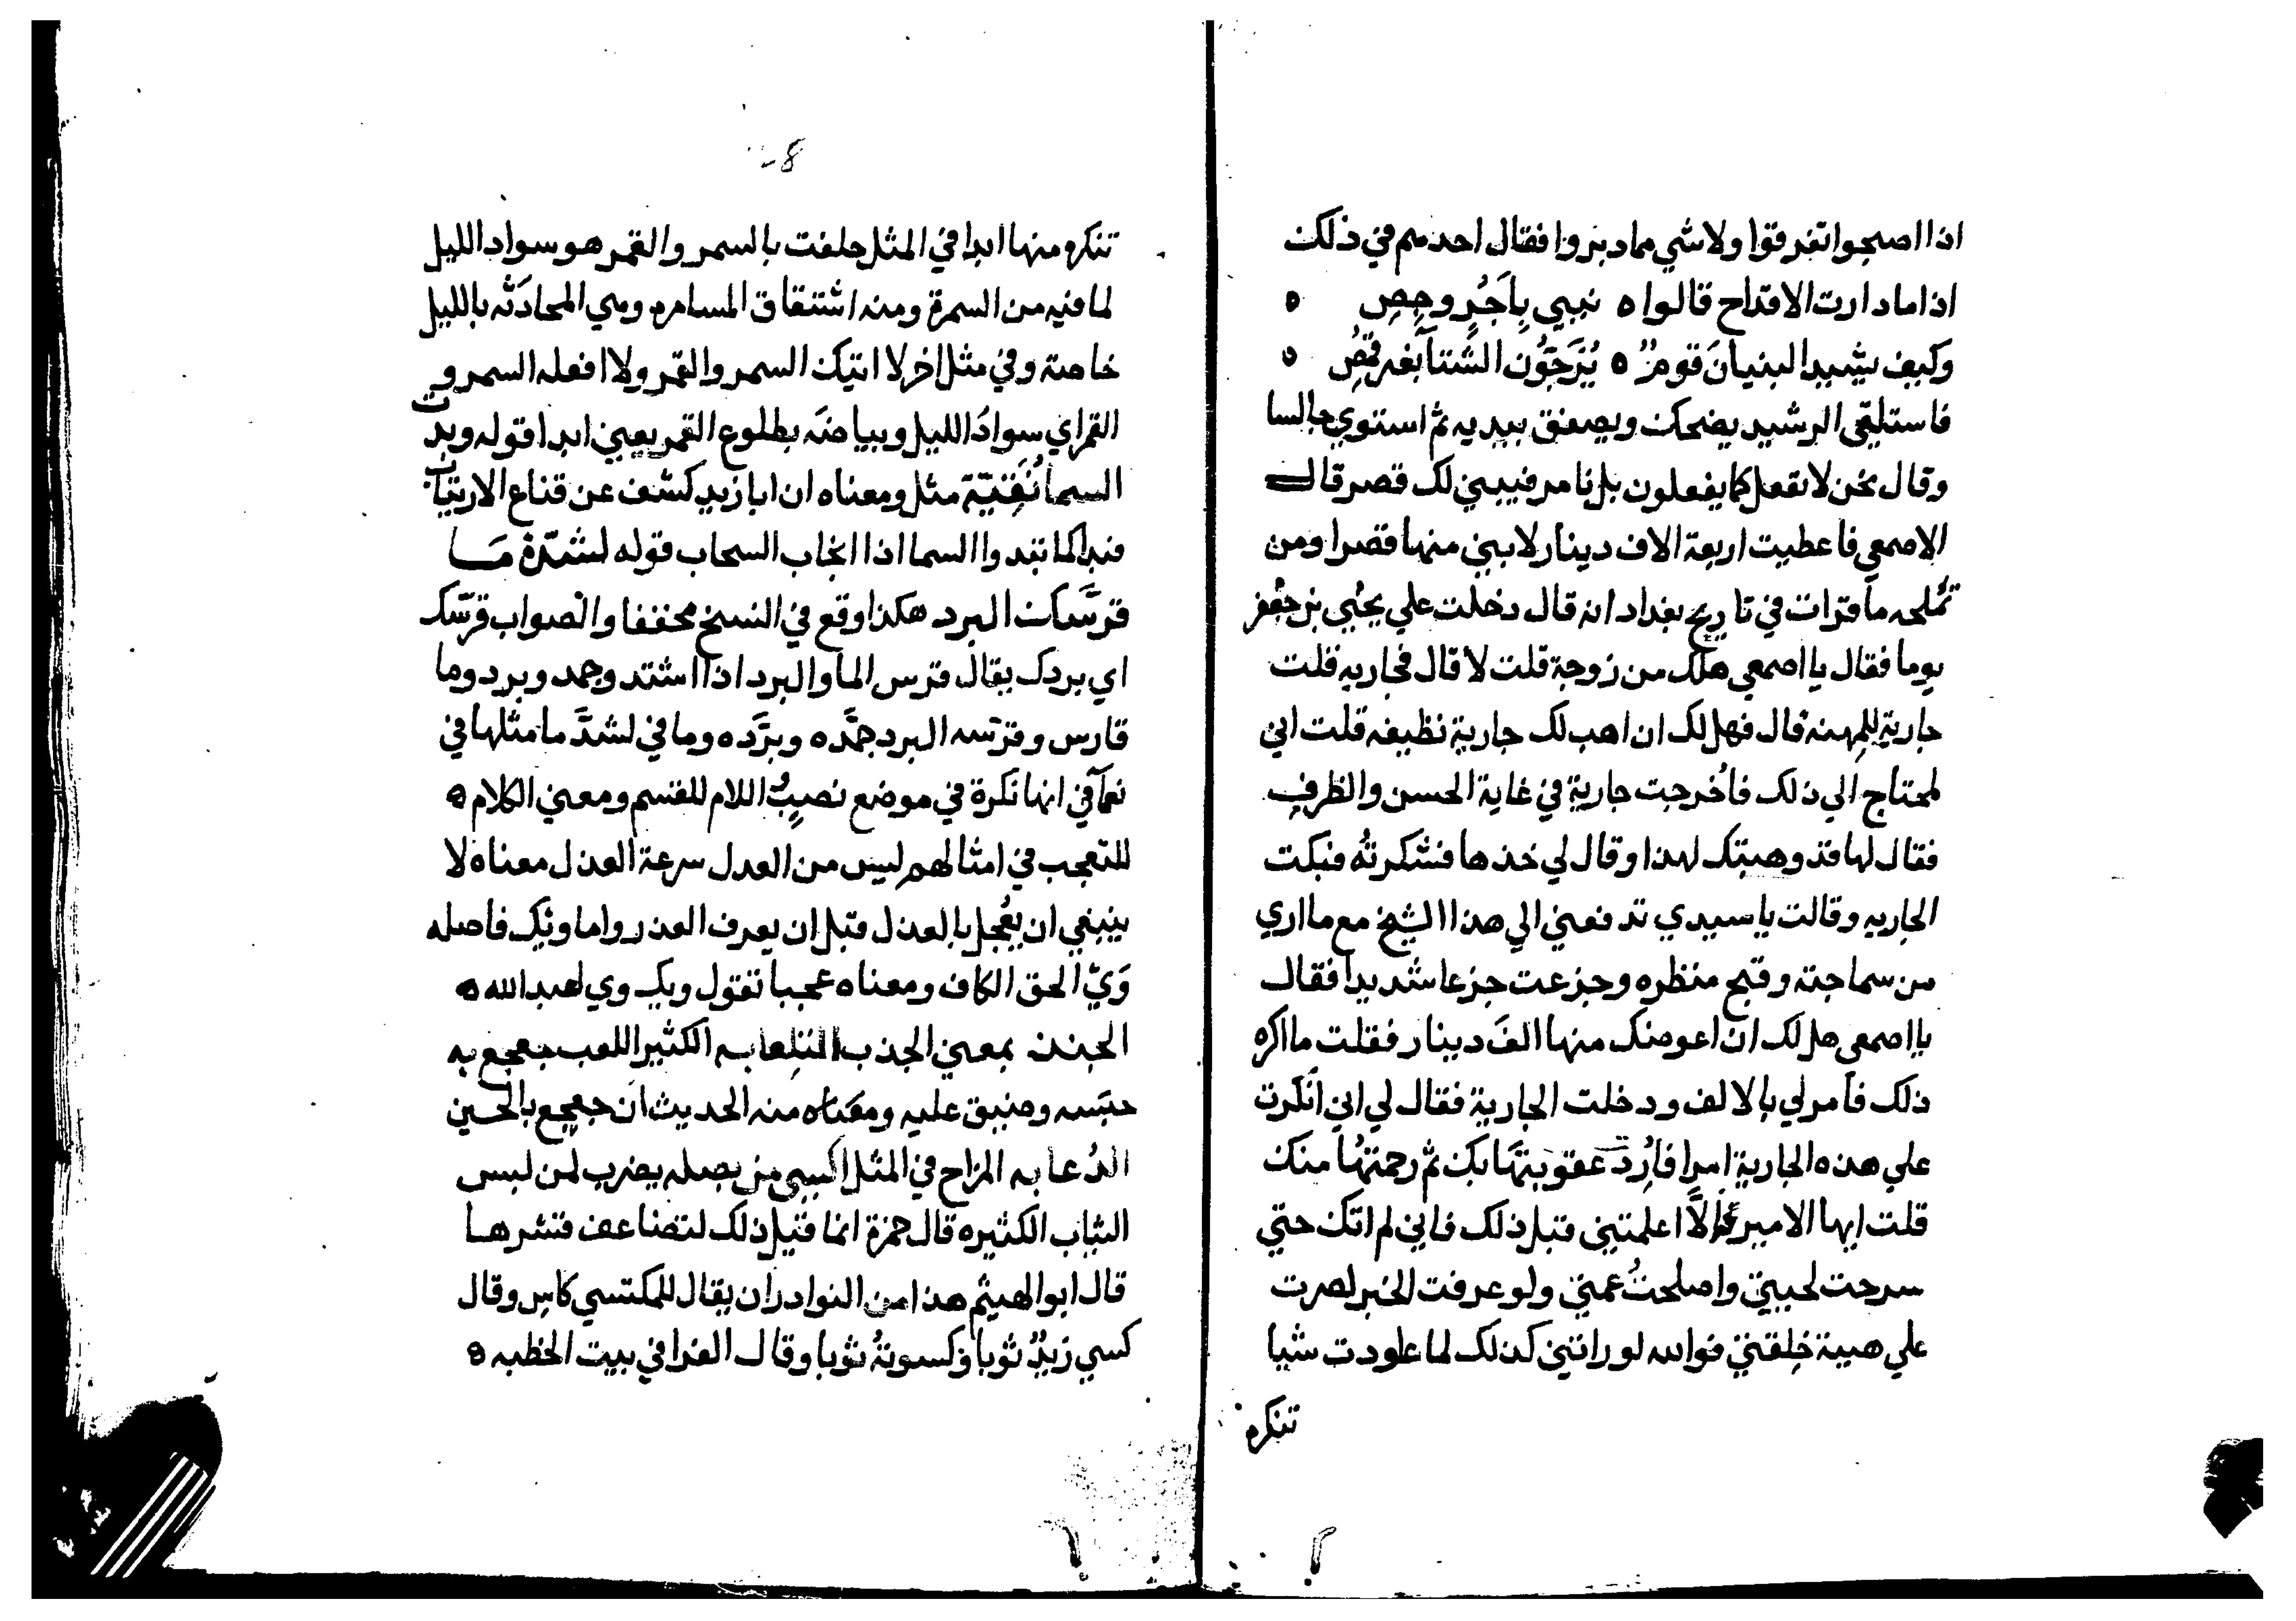 اذا اصبحوا تفرقوا ولا شي مما دبروا فقال احدهم في ذلك
اذا ما دارت الاقداح قالوا ه نبني بِاَجُرٍ وجِصِ ه
وكيف يشيد البنيانَ قومٌ ه يُزَجّوُن الشتآ بغير قُمْصِ ه
فاستلقي الرشيد يضحك ويصفق بيديه ثم استوي جالسا
وقال نحن لا نفعل كما يفعلون بل نامر فيبني لك قصر قال
الاصمعي فاعطيت اربعة الاف دينار لابني منها قصرا ومن
تملحه ما قرات في تاريخ بغداد انه قال دخلت علي يحيي بن جعفر
يوما فقال يا اصمعي هلك من زوجة قلت لا قال فجاريه قلت
جارية للمهنه قال فهل لك ان اهب لك جارية نظيفه قلت اني
لمحتاج الي ذلك فاُخرجت جارية في غاية الحسن والظرف
فقال لها قد وهبتك لهذا وقال لي خذها فشكرته فبكت
الجاريه وقالت يا سيدي تدفعني الي هذا الشيخ مع ما اري
من سماجته وقبح منظره وجزعت جزعا شديدا فقال
يا اصمعي هل لك ان اعوضك منها الفَ دينار فقلت ما اكره
ذلك فامر لي بالالف ودخلت الجارية فقال لي اني انكرت
علي هذه الجارية امرا فاردت عقوبتها بك ثم رحمتها منك
قلت ايها الامير الّا اعلمتني قبل ذلك فاني لم اتك حتي
سرحت لحيتي واصلحتُ عمتي ولو عرفت الخبر لصرت
علي هيية خلقتي فوالله لو راتني كذلك لما عاودت شيا
تنكره
8
تنكره منها ابدا في المثل حلفت بالسمر والقمر هو سواد الليل
لما فيه من السمرة ومنه اشتقاق المسامره وهي المحادَثه بالليل
خاصة وفي مثل اخر لا اتيك السمر والقمر ولا افعله السمر و
القمر اي سوادَ الليل وبياضَه بطلوع القمر يعني ابدا قوله وبدت
السما نَقِيّة مثل ومعناه ان ابا زيد كشف عن قناع الارتياب
فبدا كما تبدوا السما اذا انجاب السحاب قوله لشدّة مَا
قرسَّك البرد هكذا وقع في النسخ مخففا والصواب قرّسك
اي بردك يقال قرس الما والبرد اذا اشتد وجمد وبرد وما
قارس وقرّسه البرد جمَّده وبرَّده وما في لشدَّ ما مثلها في
نعمآ في انها نكرة في موضع نصبٍ اللام للقسم ومعني الكلام ه
للتعجب في امثالهم ليس من العدل سرعة العذل معناه لا
ينبغي ان يُعْجل بالعذل قبل ان يعرف العذر واما ويْك فاصله
وَيْ الحق الكاف ومعناه عجبا تقول ويك وي لعبد الله ه
الجبذ بمعني الجذب التلعابه الكثير اللعب جعجع به
حبَسه وضيق عليه ومعناه منه الحديث ان جعجع بالحسين
الدُعابه المزاح في المثل اكسي من بصله يضرب لمن لبس
الثياب الكثيره قال حمزة انما قيل ذلك لتضاعف قشرها
قال ابو الهيثم هذا من النوادر ان يقال للمكتسي كاسٍ وقال
كسي زيدٌ ثوبا وكسوتهُ ثوبا وقال الفرا في بيت الحطيه ه